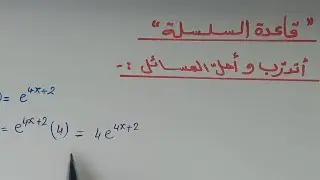 "قاعدة السلسلة"
أتدرب و أحل المسائل :-
) = e^{4x+2}
= e^{4x+2} (4) = 4e^{4x+2}